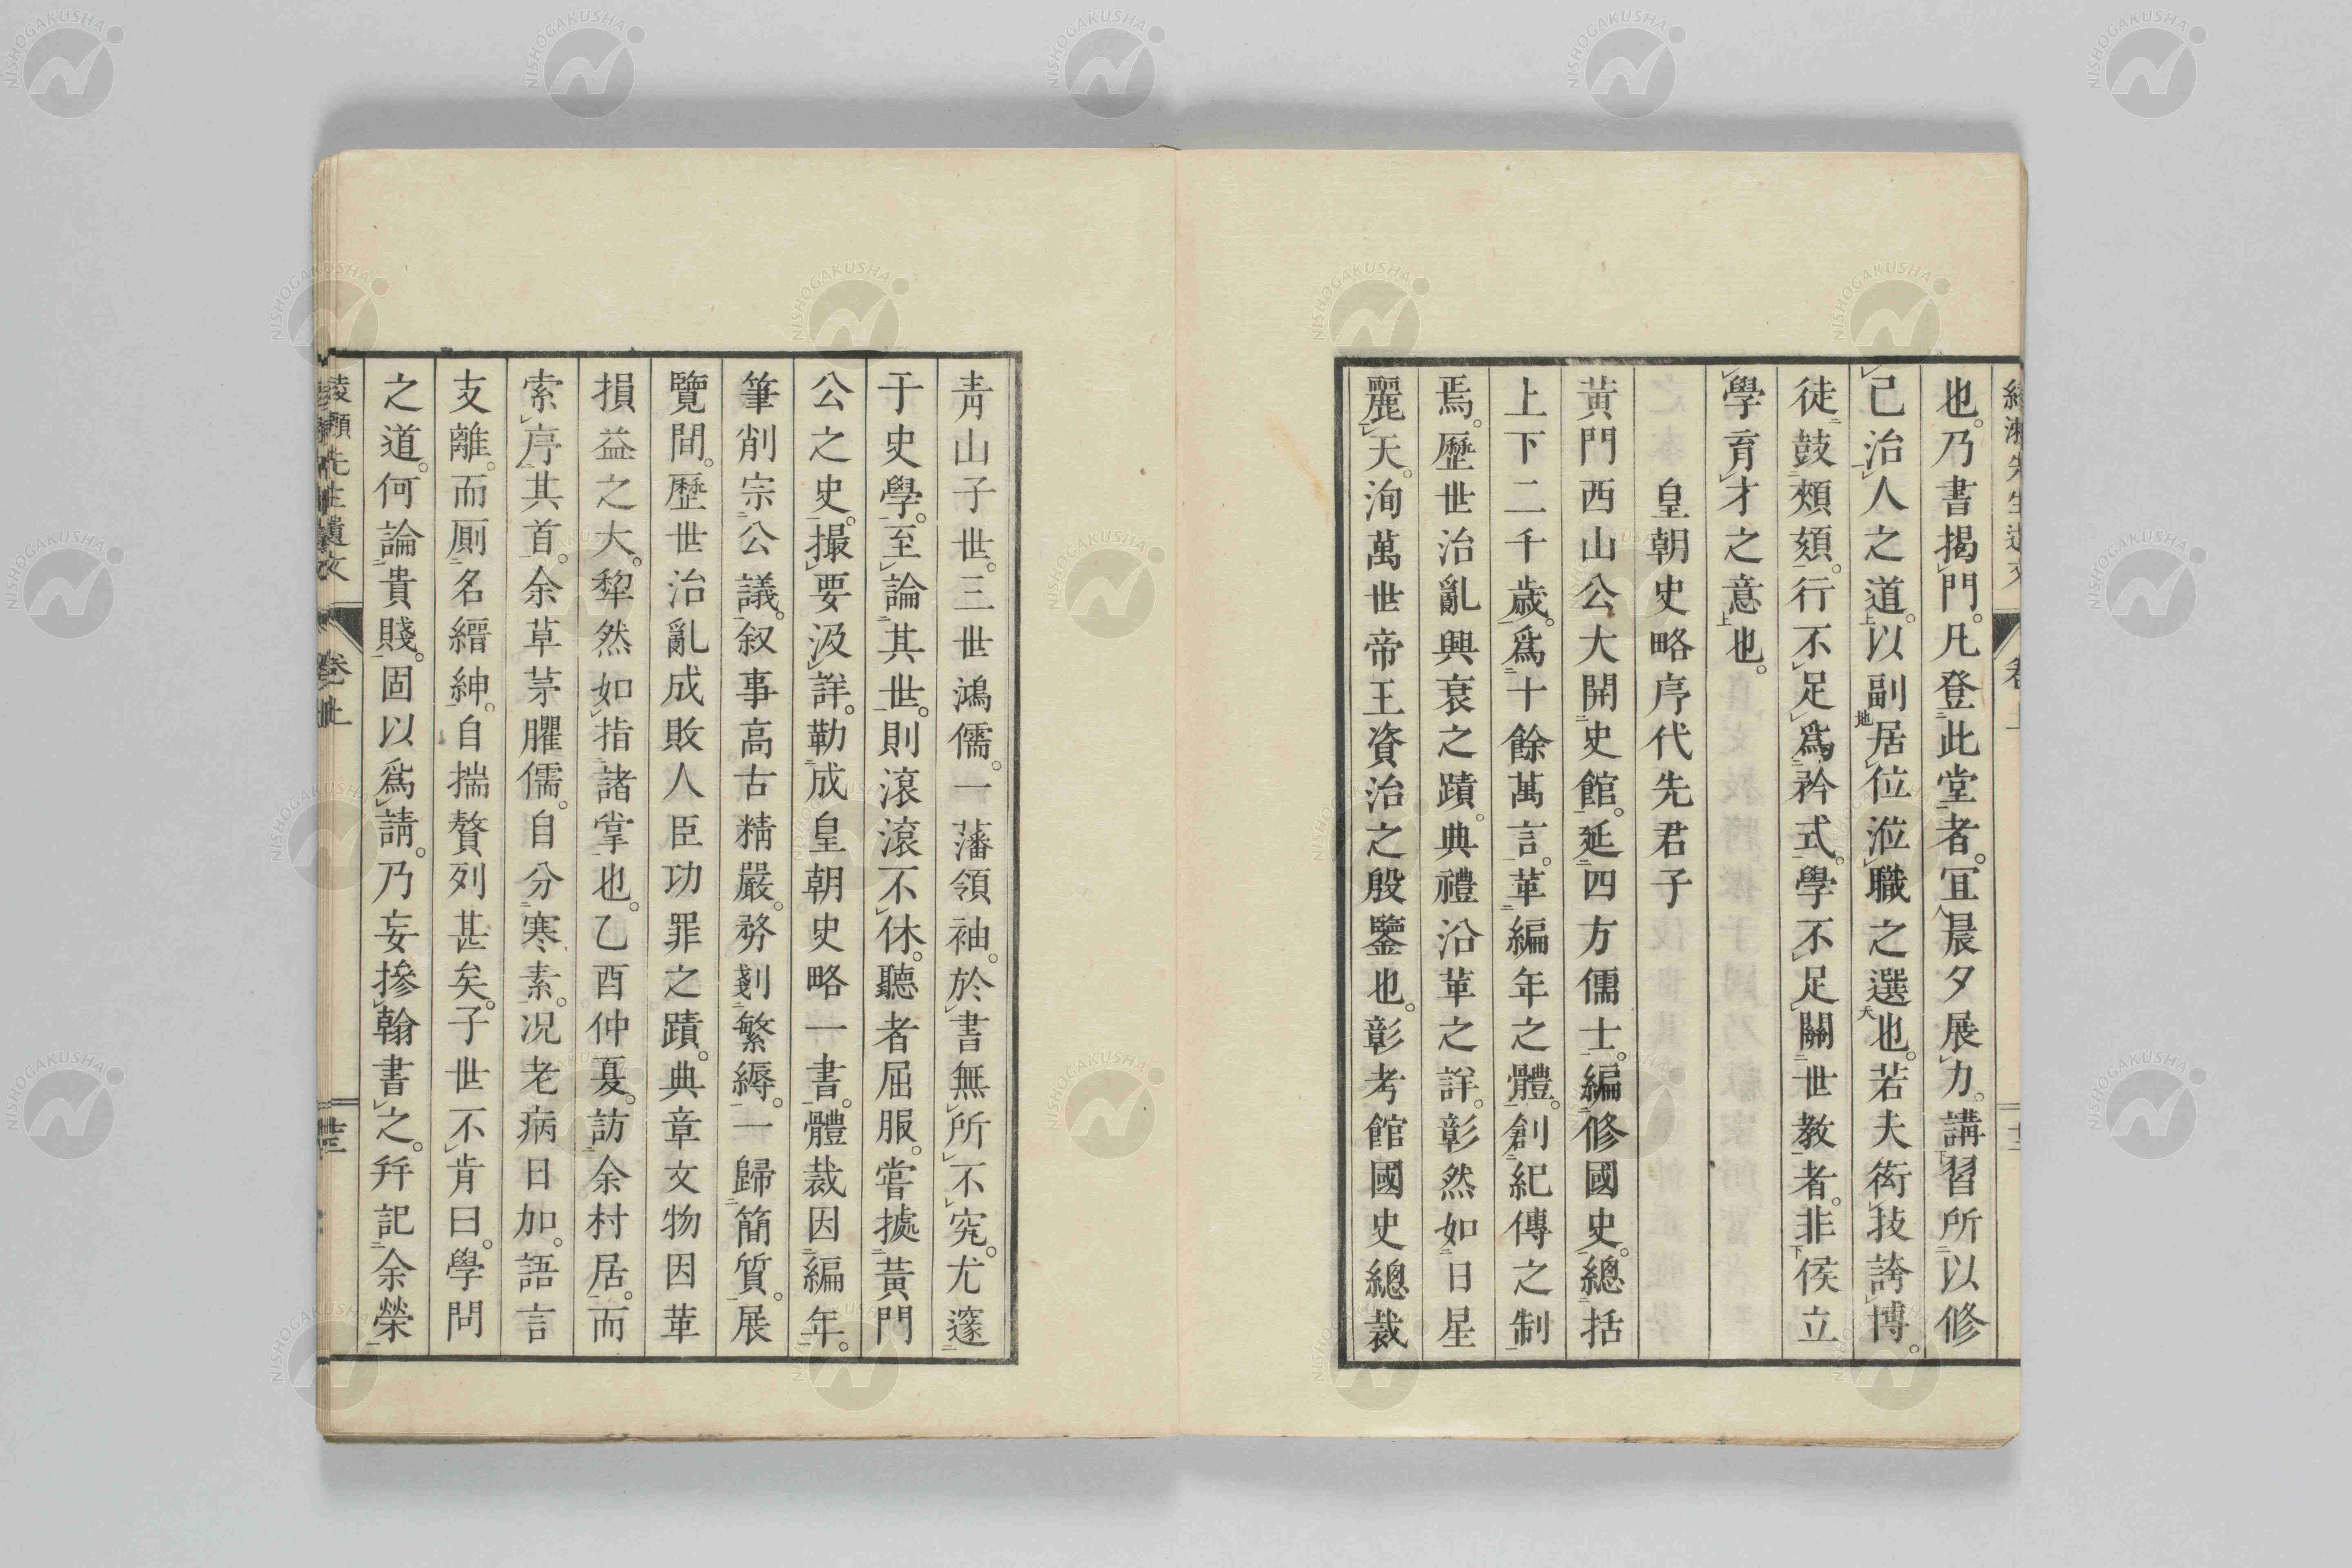 也。乃書揭門。凡登此堂者。宜晨夕展力。講習所以修
己治人之道。以副居位涖職之選也。若夫衒技誇博。
徒鼓頰頦。行不足爲矜式。學不足關世教者。非侯立
學育才之意也。
皇朝史略序代先君子
黃門西山公大開史館。延四方儒士。編修國史。總括
上下二千歲。爲十餘萬言。革編年之體。創紀傳之制
焉。歷世治亂興衰之蹟。典禮沿革之詳。彰然如日星
麗天。洵萬世帝王資治之殷鑒也。彰考館國史總裁
青山子世。三世鴻儒。一藩領袖。於書無所不究。尤邃
于史學。至論其世。則滾滾不休。聽者屈服。嘗據黃門
公之史。撮要汲詳。勒成皇朝史略一書。體裁因編年。
筆削宗公議。叙事高古精嚴。務剗繁縟。一歸簡質。展
覽間。歷世治亂成敗人臣功罪之蹟。典章文物因革
損益之大。犂然如指諸掌也。乙酉仲夏。訪余村居。而
索序其首。余草茅臞儒。自分寒素。况老病日加。語言
支離。而厠名縉紳。自揣贅列甚矣。子世不肯曰。學問
之道。何論貴賤。固以爲請。乃妄摻翰書之。幷記余榮
卷上
NISHOGAKUSHA